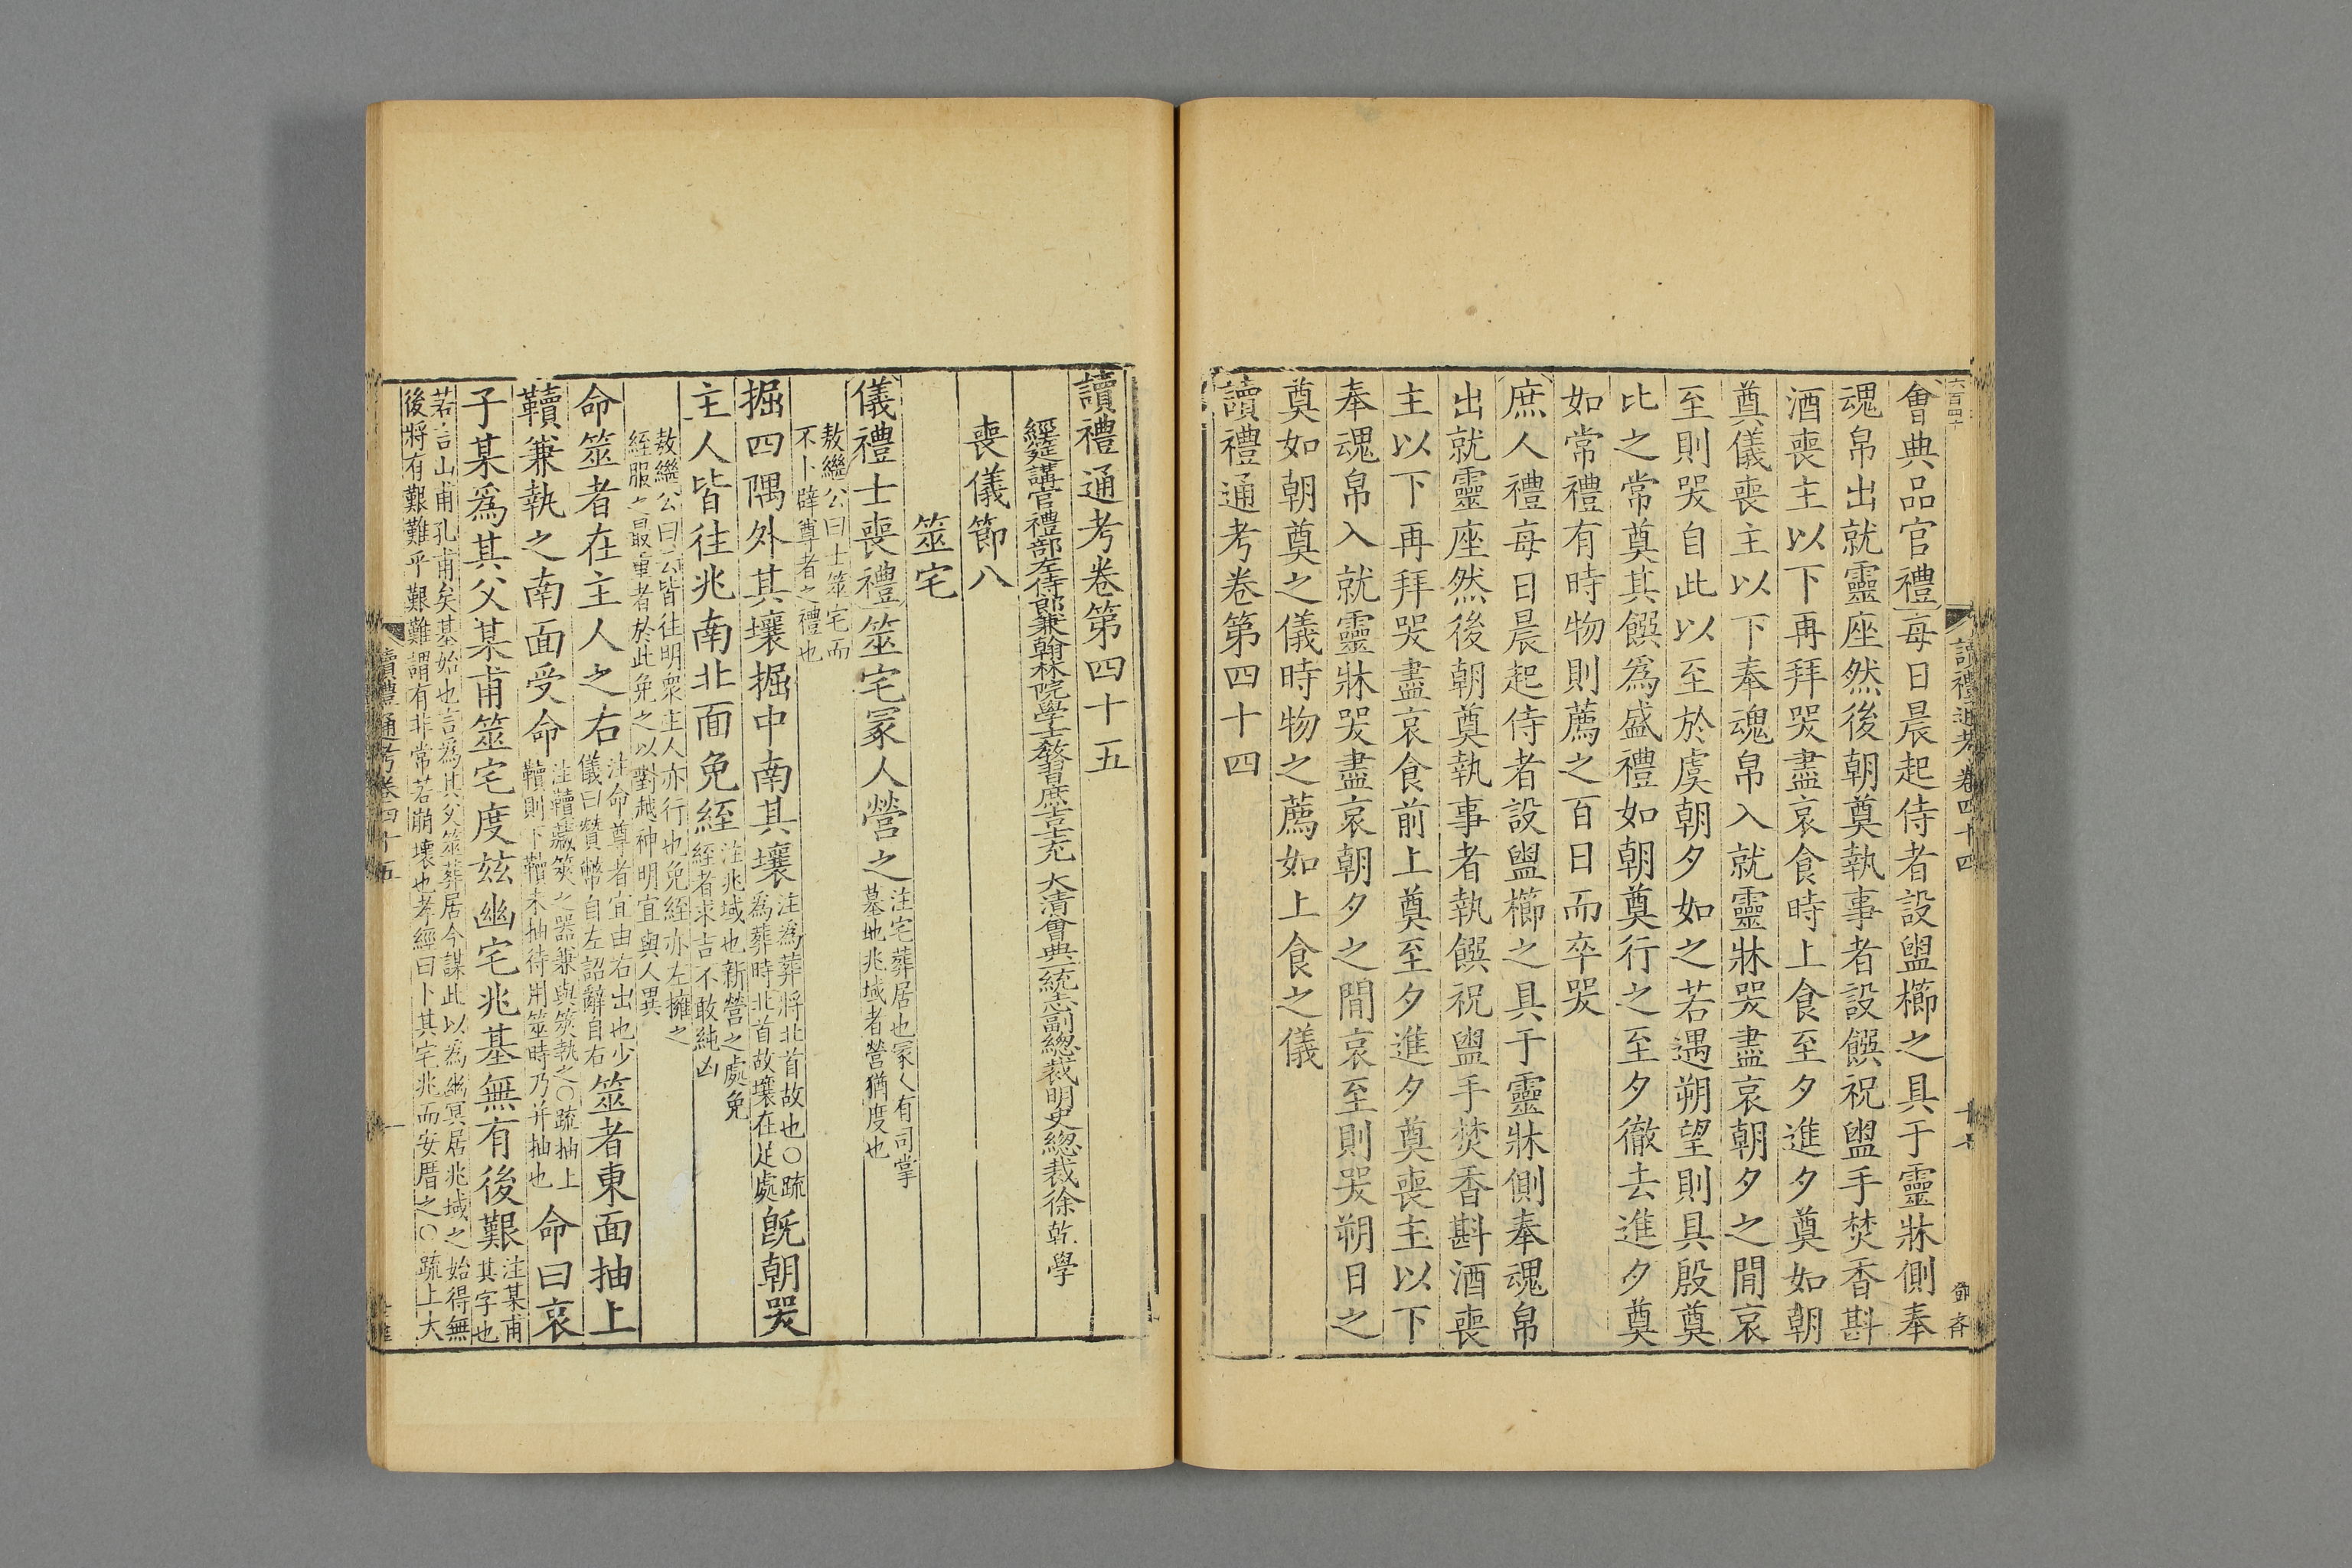 六百四十
讀禮通考卷四十四
會典品官禮每日晨起侍者設盥櫛之具于靈牀側奉
魂帛出就靈座然後朝奠執事者設饌祝盥手焚香斟
酒喪主以下再拜哭盡哀食時上食至夕進夕奠如朝
奠儀喪主以下奉魂帛入就靈牀哭盡哀朝夕之間哀
至則哭自此以至於虞朝夕如之若遇朔望則具殷奠
比之常奠其饌為盛禮如朝奠行之至夕徹去進夕奠
如常禮有時物則薦之百日而卒哭
庶人禮每日晨起侍者設盥櫛之具于靈牀側奉魂帛
出就靈座然後朝奠執事者執饌祝盥手焚香斟酒喪
主以下再拜哭盡哀食前上奠至夕進夕奠喪主以下
奉魂帛入就靈牀哭盡哀朝夕之間哀至則哭朔日之
奠如朝奠之儀時物之薦如上食之儀
讀禮通考卷第四十四
讀禮通考卷第四十五
經筵講官禮部左侍郎兼翰林院學士教習庶吉士充 大清會典一統志副總裁明史總裁徐乾學
喪儀節八
筮宅
儀禮士喪禮筮宅冢人營之注宅葬居也冢人有司掌
墓地兆域者營猶度也
敖繼公曰士筮宅而
不卜辟尊者之禮也
掘四隅外其壤掘中南其壤注為葬將北首故也○疏
為葬時北首故壤在足處既朝哭
主人皆往兆南北面免絰注兆域也新營之處免
絰者求吉不敢純凶
敖繼公曰云皆往明衆主人亦行也免絰亦左擁之
絰服之最重者於此免之以對越神明宜與人異
命筮者在主人之右注命尊者宜由右出也少
儀曰贊幣自左詔辭自右筮者東面抽上
韇兼執之南面受命注韇藏筴之器兼與筴執之○疏抽上
韇則下韇未抽待用筮時乃并抽也命曰哀
子某為其父某甫筮宅度茲幽宅兆基無有後艱注某甫
其字也
若言山甫孔甫矣基始也言為其父筮葬居今謀此以為幽冥居兆域之始得無
後將有艱難乎艱難謂有非常若崩壞也孝經曰卜其宅兆而安厝之○疏上大
讀禮通考卷四十五
一